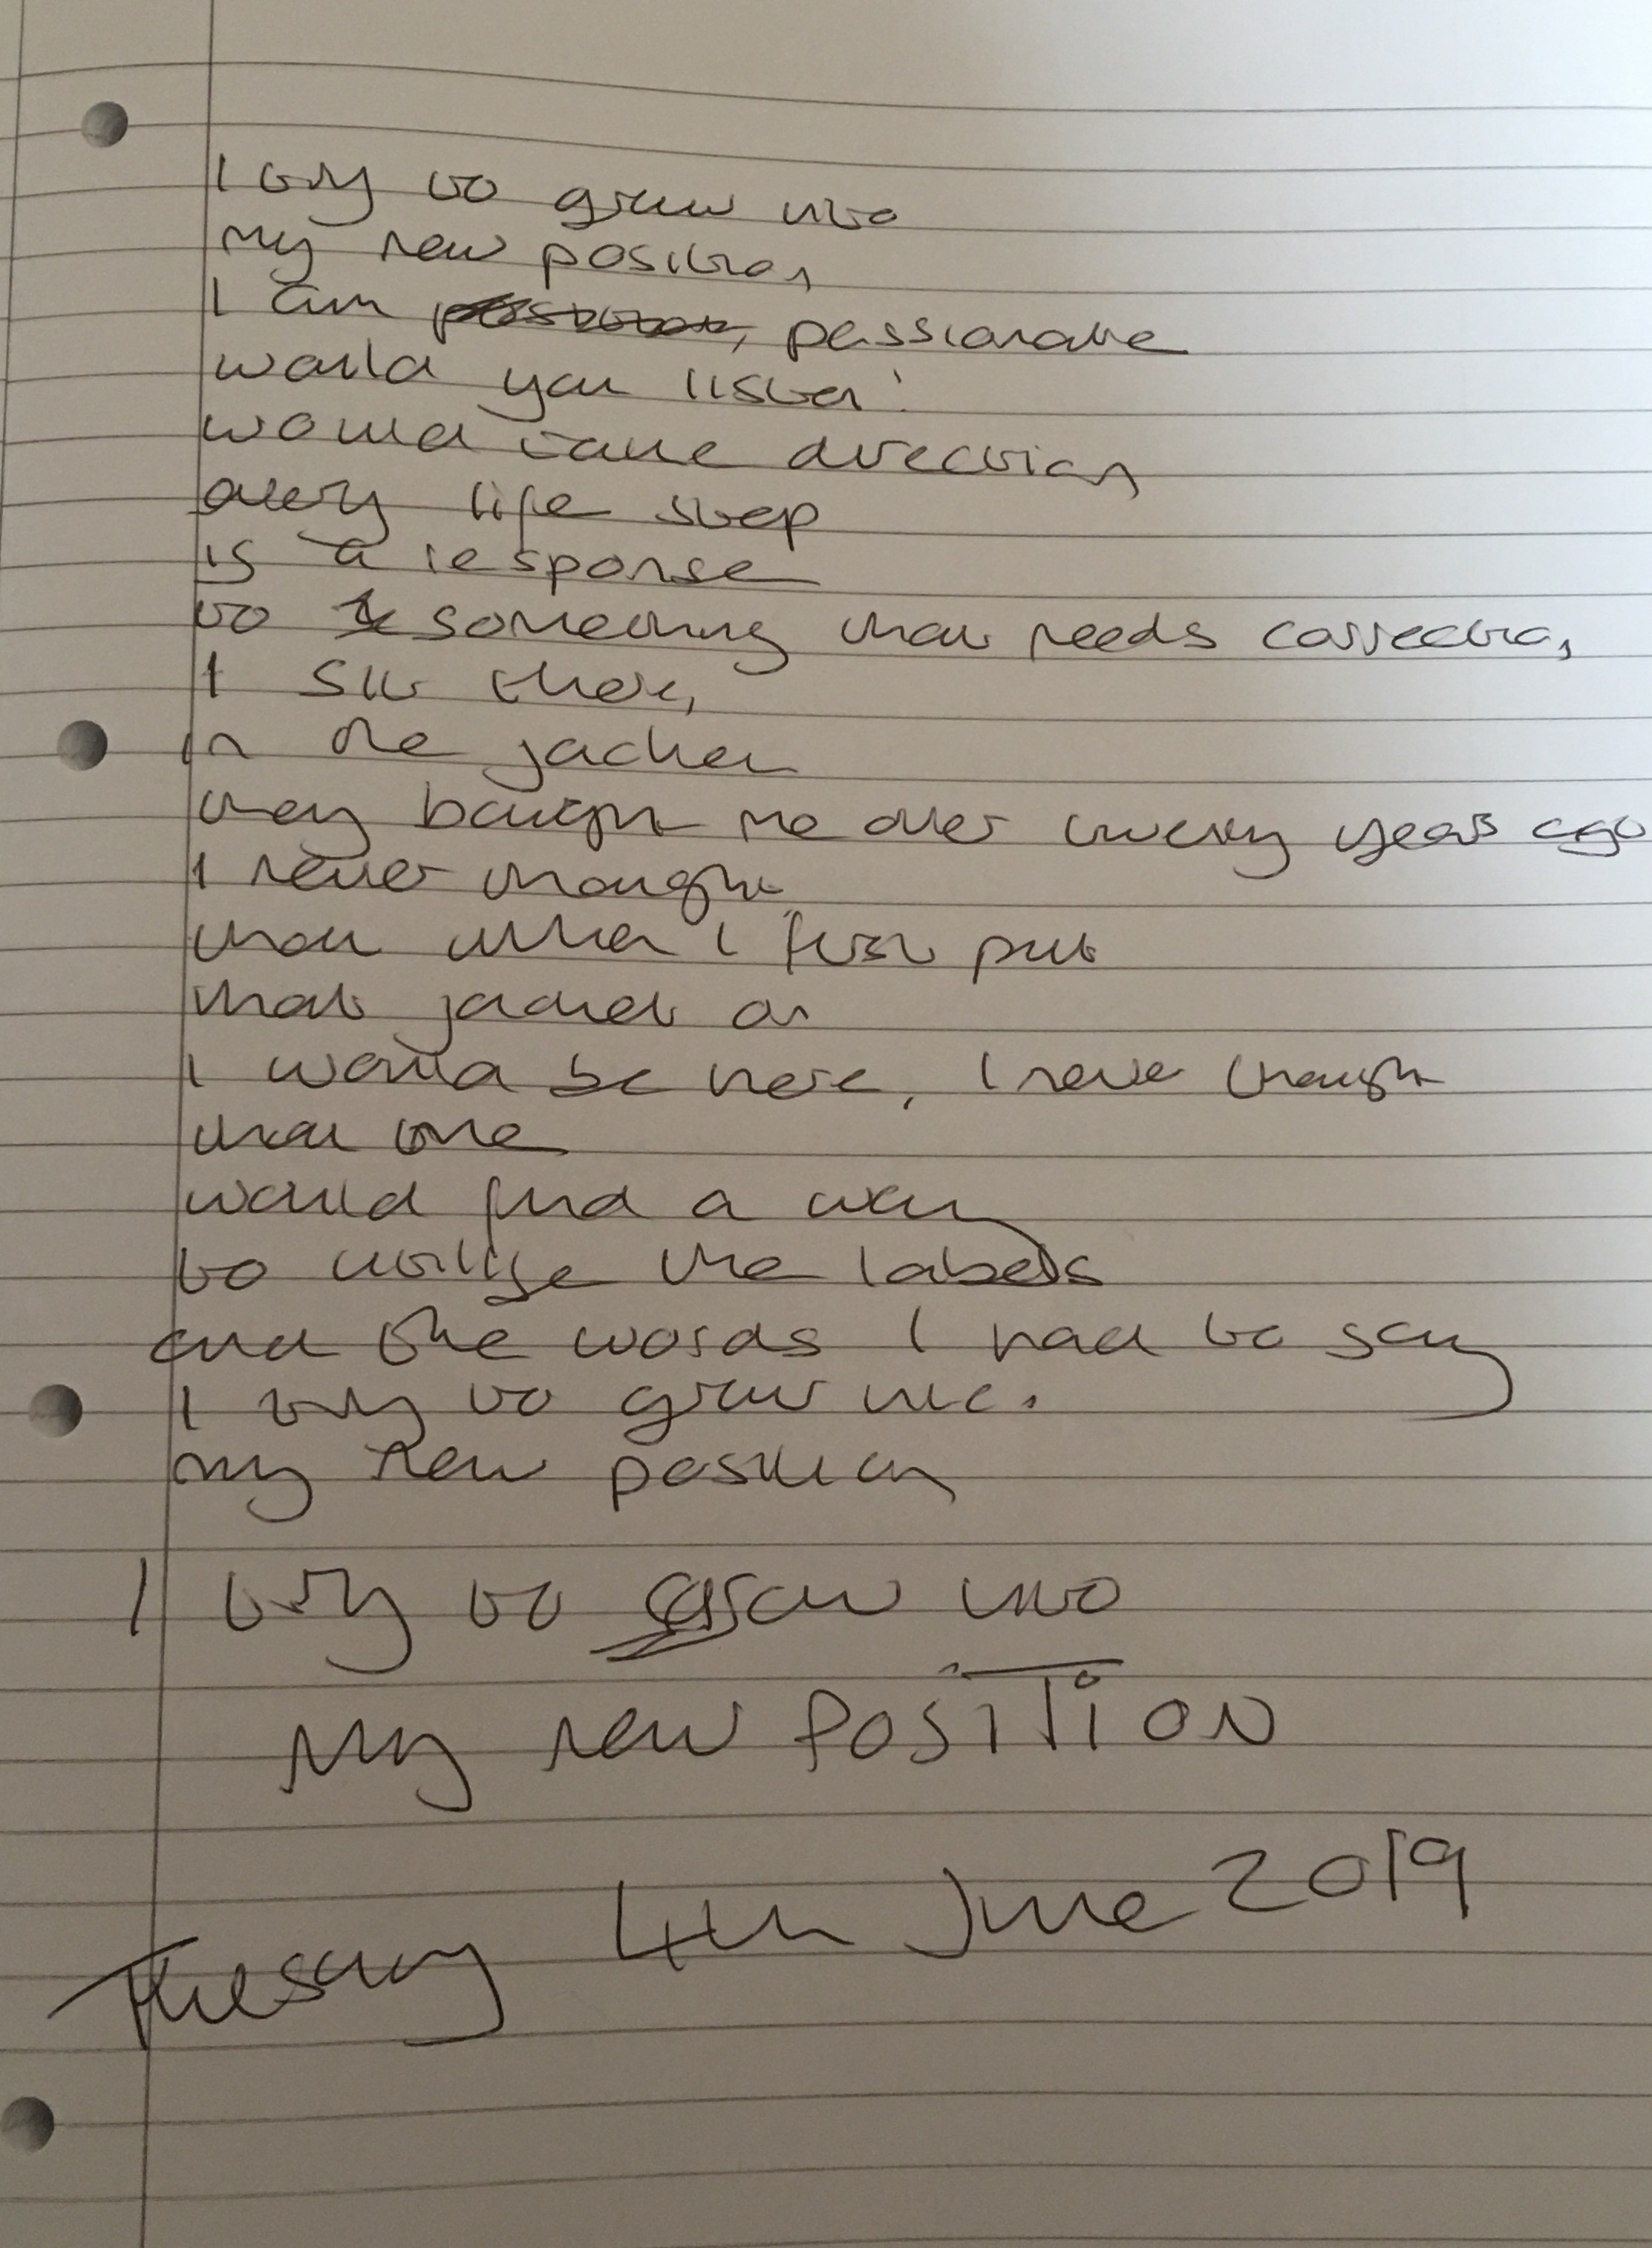 I try to grow into
my new position,
I am passionate
would you listen?
would take direction
every life step
is a response
to something that needs correction,
I sit there,
in the jacket
they bought me over twenty years ago
I never thought
that when I first put
that jacket on
I would be here, I never thought
that one
would find a way
to utilise the labels
and the words I had to say
I try to grow into
my new position
I try to grow into
My new POSITION
Tuesday 4th June 2019